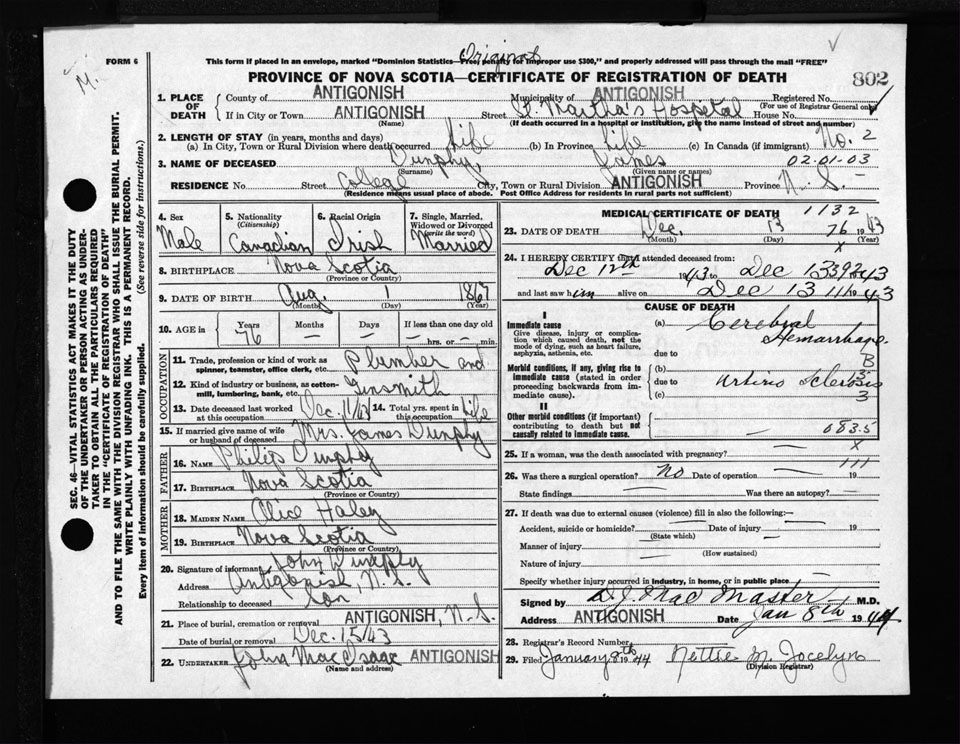 Original
FORM 6 This form if placed in an envelope, marked "Dominion Statistics—Free, penalty for improper use $300," and properly addressed will pass through the mail "FREE"
M.
PROVINCE OF NOVA SCOTIA—CERTIFICATE OF REGISTRATION OF DEATH 802
SEC. 46—VITAL STATISTICS ACT MAKES IT THE DUTY
OF THE UNDERTAKER OR PERSON ACTING AS UNDER-
TAKER TO OBTAIN ALL THE PARTICULARS REQUIRED
IN THE "CERTIFICATE OF REGISTRATION OF DEATH"
AND TO FILE THE SAME WITH THE DIVISION REGISTRAR WHO SHALL ISSUE THE BURIAL PERMIT.
WRITE PLAINLY WITH UNFADING INK. THIS IS A PERMANENT RECORD.
Every item of information should be carefully supplied. (See reverse side for instructions.)
1. PLACE OF DEATH
County of ANTIGONISH Municipality of ANTIGONISH Registered No.
(For use of Registrar General only)
If in City or Town ANTIGONISH Street St. Martha's Hospital House No.
(Name) (If death occurred in a hospital or institution, give the name instead of street and number)
2. LENGTH OF STAY (in years, months and days) No. 2
(a) In City, Town or Rural Division where death occurred Life (b) In Province Life (c) In Canada (if immigrant)
3. NAME OF DECEASED Dunphy, James 02.01-03
(Surname) (Given name or names)
RESIDENCE No. Street College City, Town or Rural Division ANTIGONISH Province N.S.
(Residence means usual place of abode. Post Office Address for residents in rural parts not sufficient)
4. Sex Male
5. Nationality (Citizenship) Canadian
6. Racial Origin Irish
7. Single, Married, Widowed or Divorced (write the word) Married
8. BIRTHPLACE Nova Scotia
(Province or Country)
9. DATE OF BIRTH Aug. 1 1867
(Month) (Day) (Year)
10. AGE in Years Months Days If less than one day old
76 — — — hrs. or — min.
OCCUPATION
11. Trade, profession or kind of work as spinner, teamster, office clerk, etc. Plumber and
12. Kind of industry or business, as cotton-mill, lumbering, bank, etc. Tinsmith
13. Date deceased last worked at this occupation Dec. 11/43 14. Total yrs. spent in this occupation Life
15. If married give name of wife or husband of deceased Mrs. James Dunphy
FATHER
16. NAME Philip Dunphy
17. BIRTHPLACE Nova Scotia
(Province or Country)
MOTHER
18. MAIDEN NAME Alice Haley
19. BIRTHPLACE Nova Scotia
(Province or Country)
20. Signature of informant John Dunphy
Address Antigonish, N.S.
Relationship to deceased Son
21. Place of burial, cremation or removal ANTIGONISH, N.S.
Date of burial or removal Dec. 15/43
22. UNDERTAKER John MacIsaac ANTIGONISH
(Name and address)
MEDICAL CERTIFICATE OF DEATH 1132
23. DATE OF DEATH Dec. 13 76 1943
(Month) (Day) (Year)
24. I HEREBY CERTIFY that I attended deceased from:
Dec 12th 1943 to Dec 13 392 43
and last saw him alive on Dec 13 111 1943
CAUSE OF DEATH
I
Immediate cause (a) Cerebral Hemorrhage
Give disease, injury or complication which caused death, not the mode of dying, such as heart failure, asphyxia, asthenia, etc.
due to B
Morbid conditions, if any, giving rise to immediate cause (stated in order proceeding backwards from immediate cause). (b)
due to Arterio Sclerosis
(c) 3
II
Other morbid conditions (if important) contributing to death but not causally related to immediate cause. — 683.5
25. If a woman, was the death associated with pregnancy? X
26. Was there a surgical operation? No Date of operation — 19
State findings — Was there an autopsy? —
27. If death was due to external causes (violence) fill in also the following:—
Accident, suicide or homicide? — Date of injury — 19
(State which)
Manner of injury —
(How sustained)
Nature of injury
Specify whether injury occurred in industry, in home, or in public place
Signed by D.J. MacMaster M.D.
Address ANTIGONISH Date Jan 8th 1944
28. Registrar's Record Number
29. Filed January 8th 1944 Nettie M. Jocelyn
(Division Registrar)